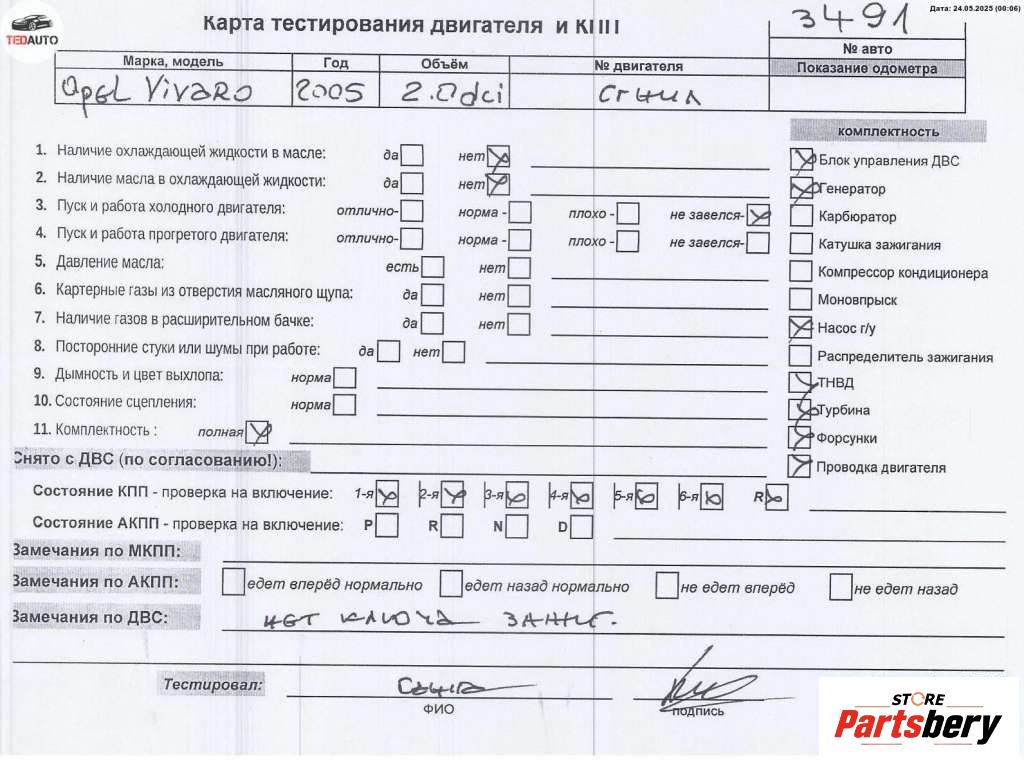 TEDAUTO
Карта тестирования двигателя и КПП
3491
Дата: 24.05.2025 (00:06)
№ авто
Марка, модель Год Объём № двигателя Показание одометра
Opel Vivaro 2005 2.0dci сгнил
комплектность
1. Наличие охлаждающей жидкости в масле: да нет
Блок управления ДВС
2. Наличие масла в охлаждающей жидкости: да нет
Генератор
3. Пуск и работа холодного двигателя: отлично- норма - плохо - не завелся-
Карбюратор
4. Пуск и работа прогретого двигателя: отлично- норма - плохо - не завелся-
Катушка зажигания
5. Давление масла: есть нет
Компрессор кондиционера
6. Картерные газы из отверстия масляного щупа: да нет
Моновпрыск
7. Наличие газов в расширительном бачке: да нет
Насос г/у
8. Посторонние стуки или шумы при работе: да нет
Распределитель зажигания
9. Дымность и цвет выхлопа: норма
ТНВД
10. Состояние сцепления: норма
Турбина
11. Комплектность : полная
Форсунки
Снято с ДВС (по согласованию!):
Проводка двигателя
Состояние КПП - проверка на включение: 1-я 2-я 3-я 4-я 5-я 6-я R
Состояние АКПП - проверка на включение: P R N D
Замечания по МКПП:
Замечания по АКПП: едет вперёд нормально едет назад нормально не едет вперёд не едет назад
Замечания по ДВС: нет ключа зажиг.
Тестировал:
ФИО подпись
STORE
Partsbery